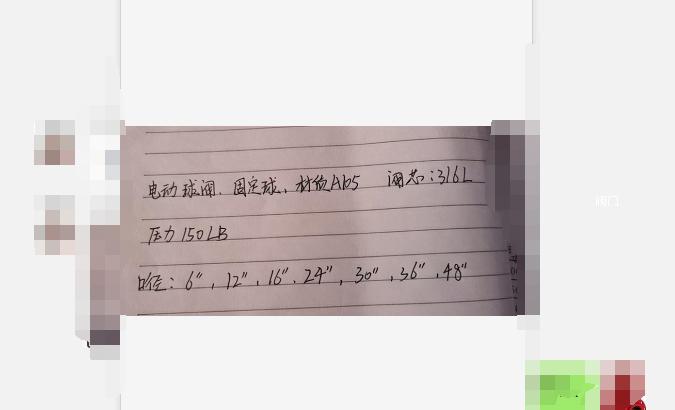 电动球阀、固定球、材质A105 阀芯:316L
压力150LB
口径:6",12",16",24",30",36",48"
阀门